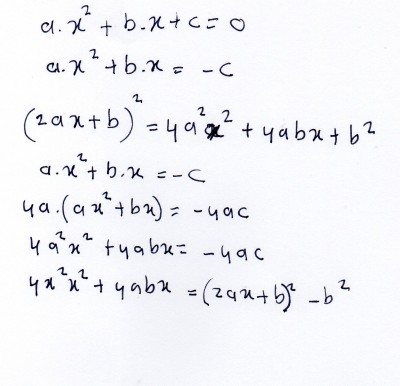 a.x² + b.x + c = 0
a.x² + b.x = -c
(2ax + b)² = 4a²x² + 4abx + b²
a.x² + b.x = -c
4a.(ax² + bx) = -4ac
4a²x² + 4abx = -4ac
4x²x² + 4abx = (2ax + b)² - b²